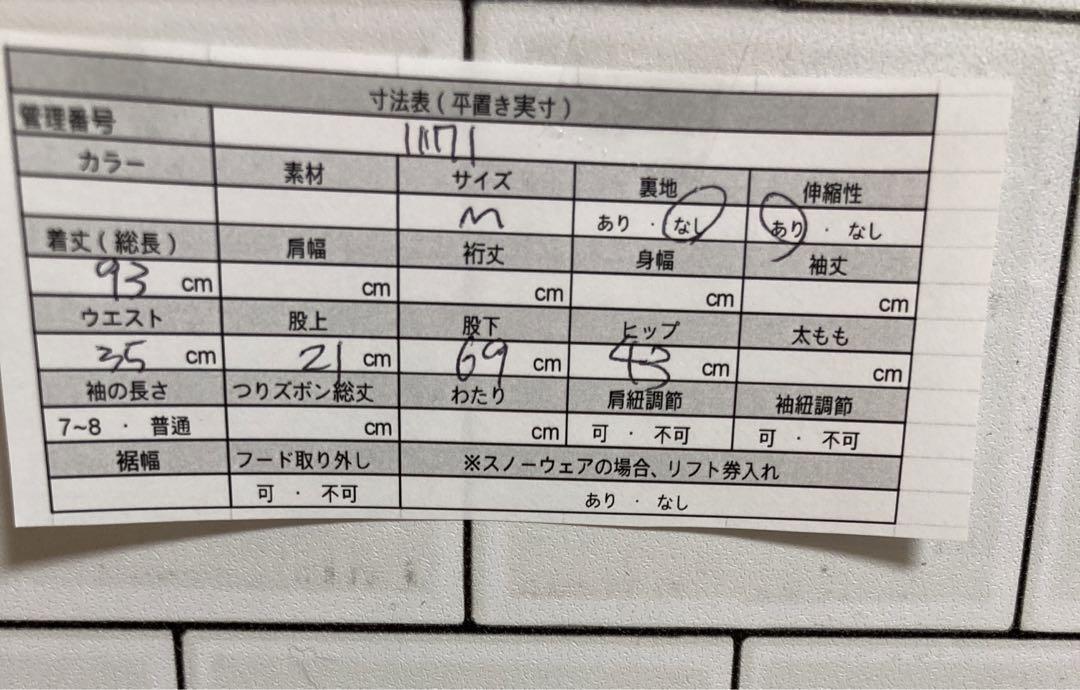 寸法表(平置き実寸)
管理番号 11171
カラー 素材 サイズ 裏地 伸縮性
M あり ・ なし あり ・ なし
着丈(総長) 肩幅 裄丈 身幅 袖丈
93 cm cm cm cm cm
ウエスト 股上 股下 ヒップ 太もも
35 cm 21 cm 69 cm 43 cm cm
袖の長さ つりズボン総丈 わたり 肩紐調節 袖紐調節
7~8 ・ 普通 cm cm 可 ・ 不可 可 ・ 不可
裾幅 フード取り外し ※スノーウェアの場合、リフト券入れ
可 ・ 不可 あり ・ なし